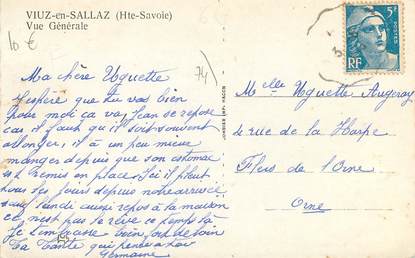 VIUZ-en-SALLAZ (Hte-Savoie)
Vue Générale
10 €
74
Ma chère Uguette
J'espère que tu vas bien
pour moi ça va, Jean se repose
car il faut qu'il soit souvent
allonger, il à un peu mieux
manger depuis que son estomac
est remis en place. Ici il pleut
tous les jours depuis notre arrivée
sauf lundi aussi repos à la maison
ce n'est pas le rêve ce temps là
Je t'embrasse bien fort de loin
Ta Tante qui pense à toi
Germaine
Melle Uguette Augeray
rue de la Harpe
Flers de l'Orne
Orne
5F
POSTES
RF